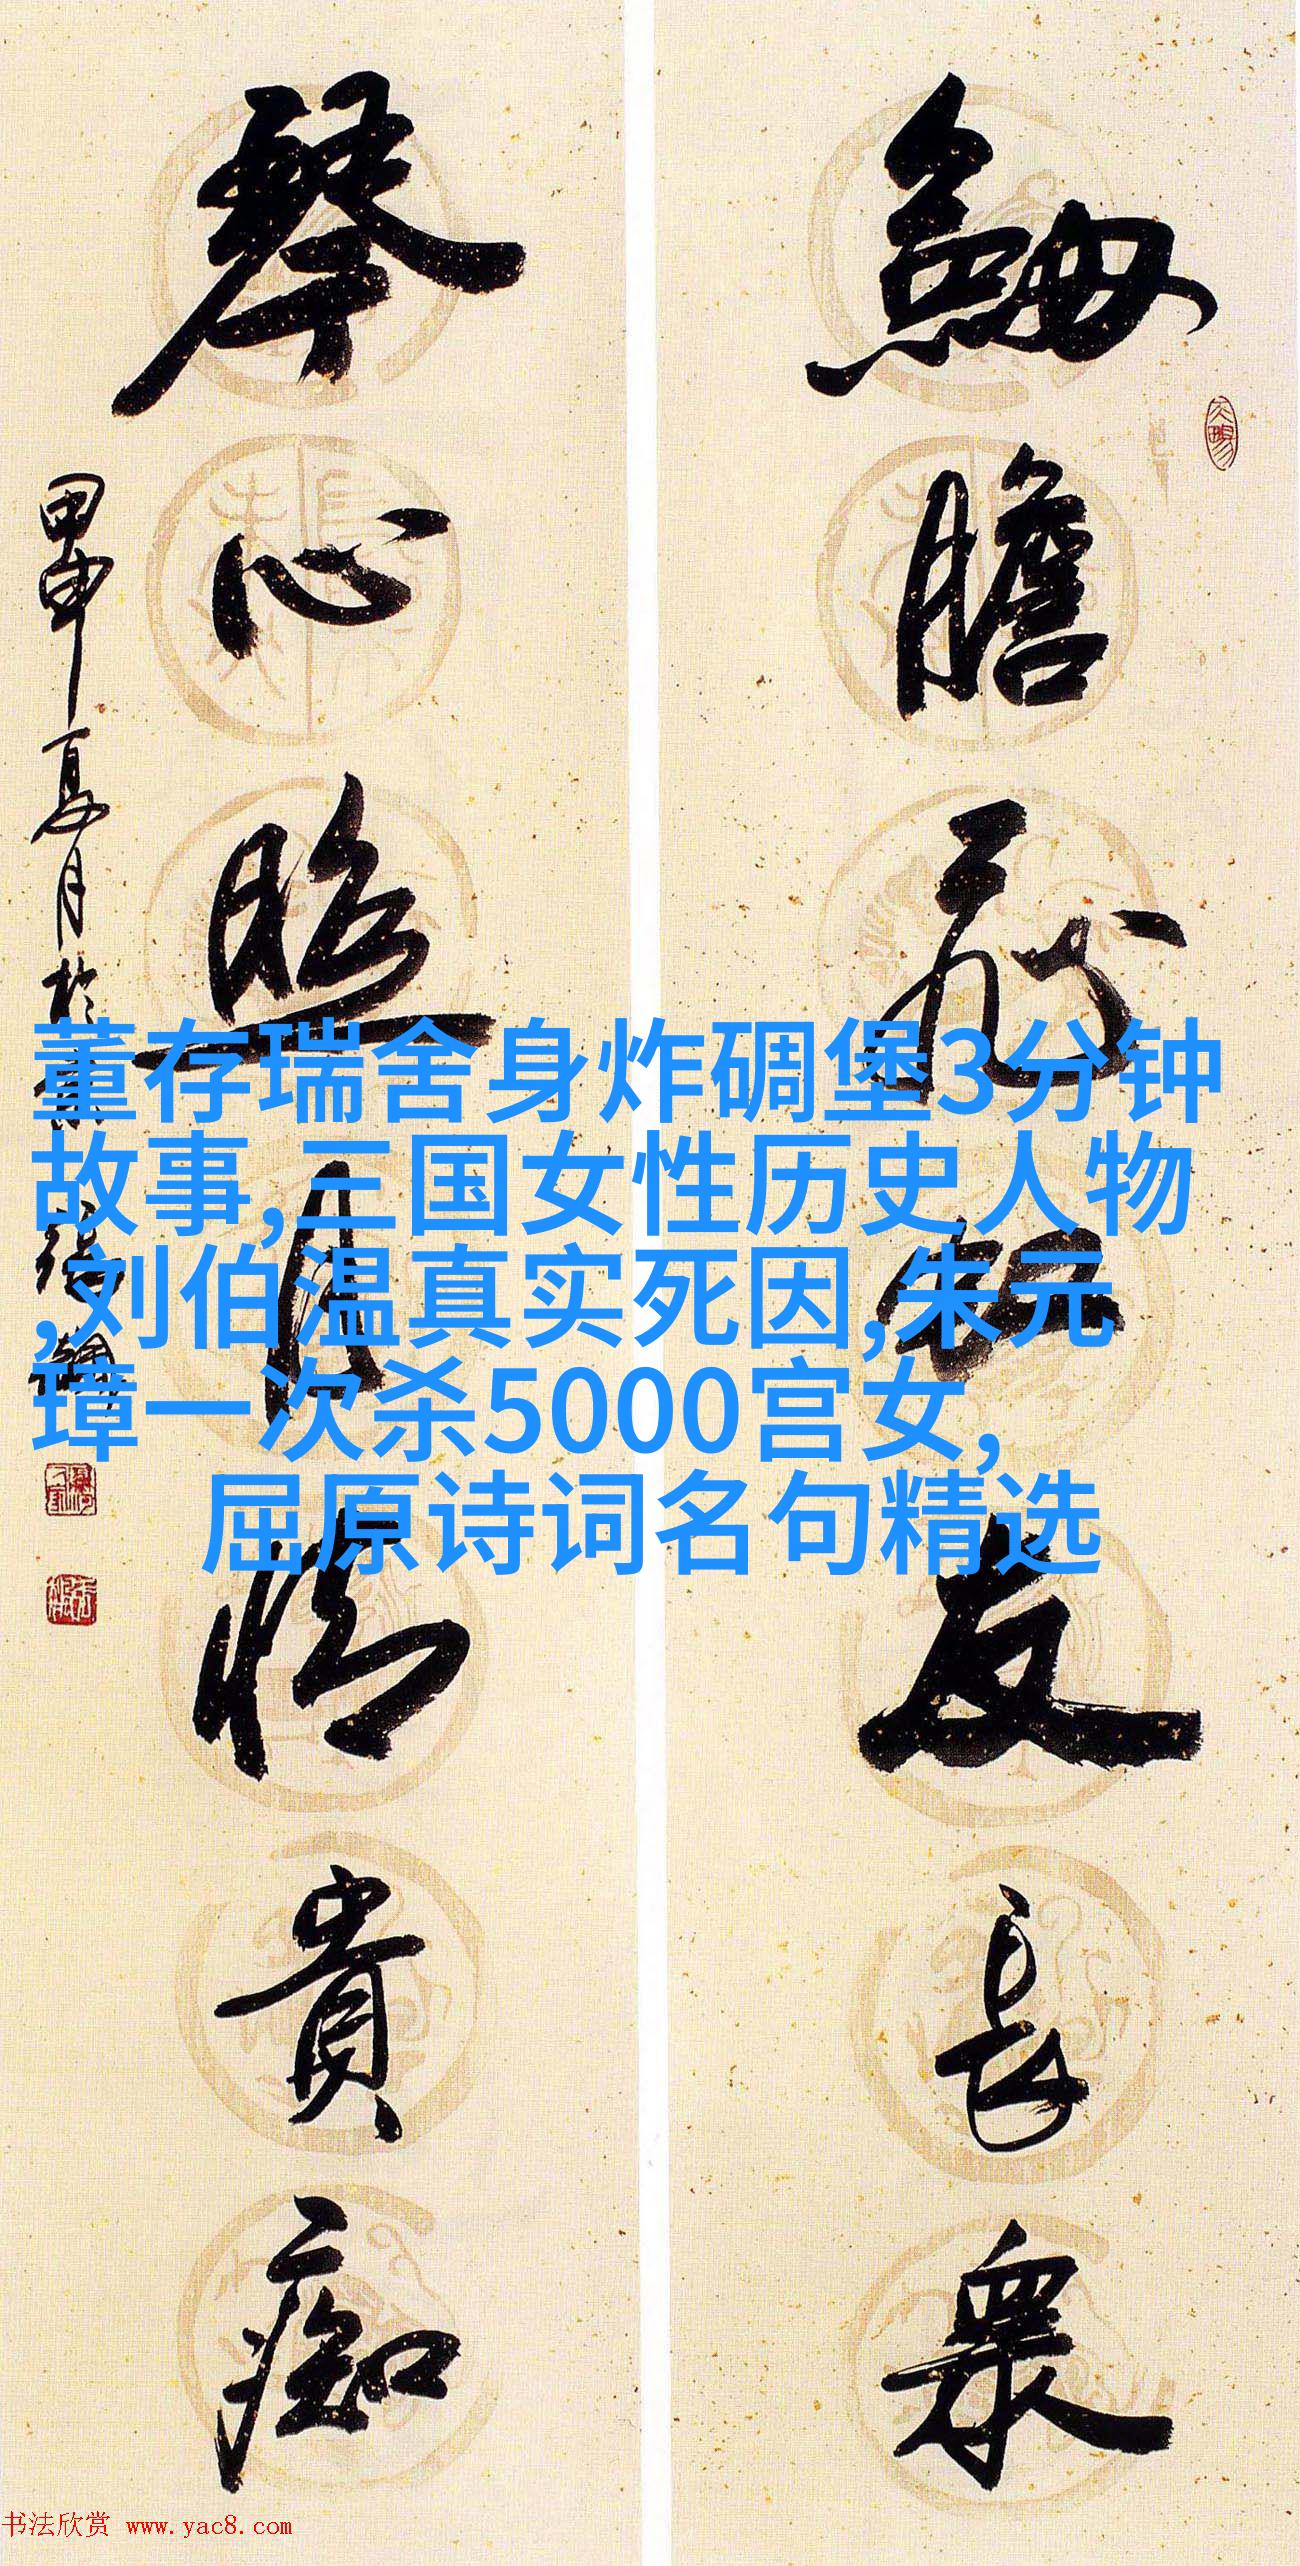 琴心照月情贵痴
甲申夏月於
剑胆
友长众
董存瑞舍身炸碉堡3分钟
故事,三国女性历史人物
,刘伯温真实死因,朱元
璋一次杀5000宫女,
屈原诗词名句精选
书法欣赏 www.yac8.com